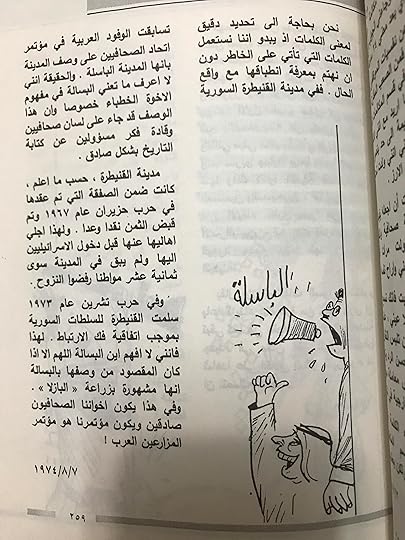 نحن بحاجة الى تحديد دقيق
لمعنى الكلمات اذ يبدو اننا نستعمل
الكلمات التي تأتي على الخاطر دون
ان نهتم بمعرفة انطباقها مع واقع
الحال . ففي مدينة القنيطرة السورية
تسابقت الوفود العربية في مؤتمر
اتحاد الصحافيين على وصف المدينة
بانها المدينة الباسلة . والحقيقة انني
لا اعرف ما تعني البسالة في مفهوم
الاخوة الخطباء خصوصا وان هذا
الوصف قد جاء على لسان صحافيين
وقادة فكر مسؤولين عن كتابة
التاريخ بشكل صادق .
مدينة القنيطرة ، حسب ما اعلم ،
كانت ضمن الصفقة التي تم عقدها
في حرب حزيران عام ١٩٦٧ وتم
قبض الثمن نقدا وعدا . ولهذا اجلي
اهاليها عنها قبل دخول الاسرائيليين
اليها ولم يبق في المدينة سوى
ثمانية عشر مواطنا رفضوا النزوح .
وفي حرب تشرين عام ١٩٧٣
سلمت القنيطرة للسلطات السورية
بموجب اتفاقية فك الارتباط . لهذا
فانني لا افهم اين البسالة اللهم الا اذا
كان المقصود من وصفها بالبسالة
انها مشهورة بزراعة «البازلا» .
وفي هذا يكون اخواننا الصحافيون
صادقين ويكون مؤتمرنا هو مؤتمر
المزارعين العرب !
١٩٧٤/٨/٧
الباسلة
٢٥٩